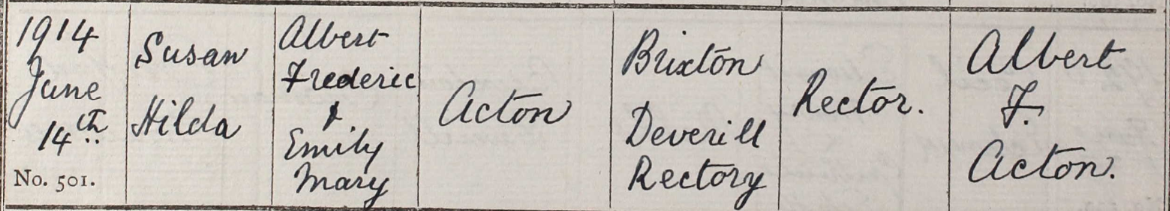 1914
June
14th
No. 501.
Susan
Hilda
Albert
Frederic
&
Emily
Mary
Acton
Brixton
Deverill
Rectory
Rector.
Albert
F.
Acton.